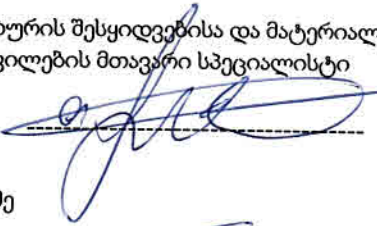 ურის შესყიდვებისა და მატერიალ
ილების მთავარი სპეციალისტი